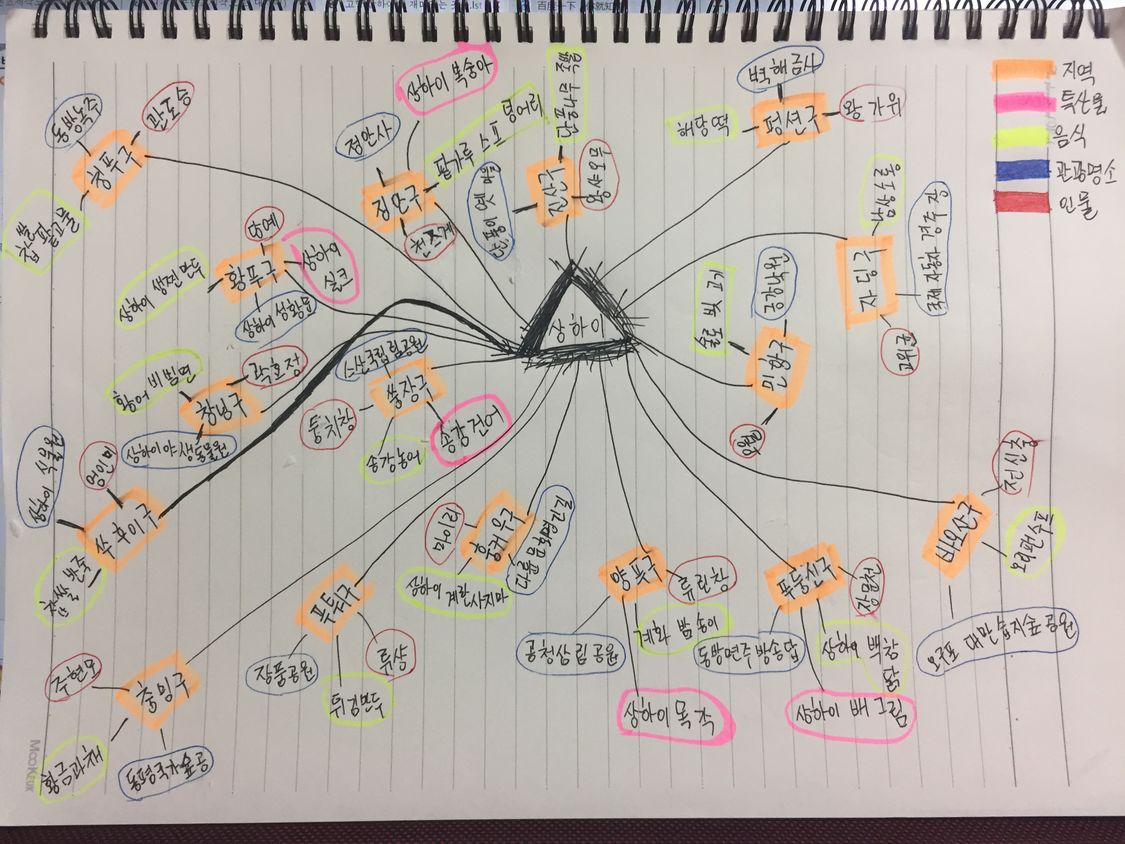 百度一下
지역
특산물
음식
관광명소
인물
상하이
청푸구
동방녹주
관도승
쌀
찹 팥고물
징안구
정안사
상하이 복숭아
팥가루 스프 덩어리
천쯔계
진산구
단풍나무 족발
황샤오무
펑션구
벽해금사
왕 가위
해당떡
쟈딩구
남상소롱
국제 자동차 경주 장
고위균
황푸구
당예
상하이
실크
상하이 생전만두
상하이 성황묘
창닝구
곽호정
황어 비빔면
상하이 야생 동물원
쑹장구
서산국립 림공원
퉁치창
송강 건어
송강농어
민항구
금강낙원
쑤후이구
상하이 식물원
엉민미
찹쌀 만두
홍커우구
마이리
상하이 계란 사지마
다륜문화명인길
양푸구
류린창
공청삼림 공원
계화 밤송이
상하이 목각
푸동신구
동방명주 방송탑
상하이 백참
닭
상하이 배 그림
바오산구
오판스프
오구포 대만 습지숲 공원
푸퉈구
장풍공원
튀김만두
류상
충밍구
주현모
황금과채
동평국가숲공
MooKeuk